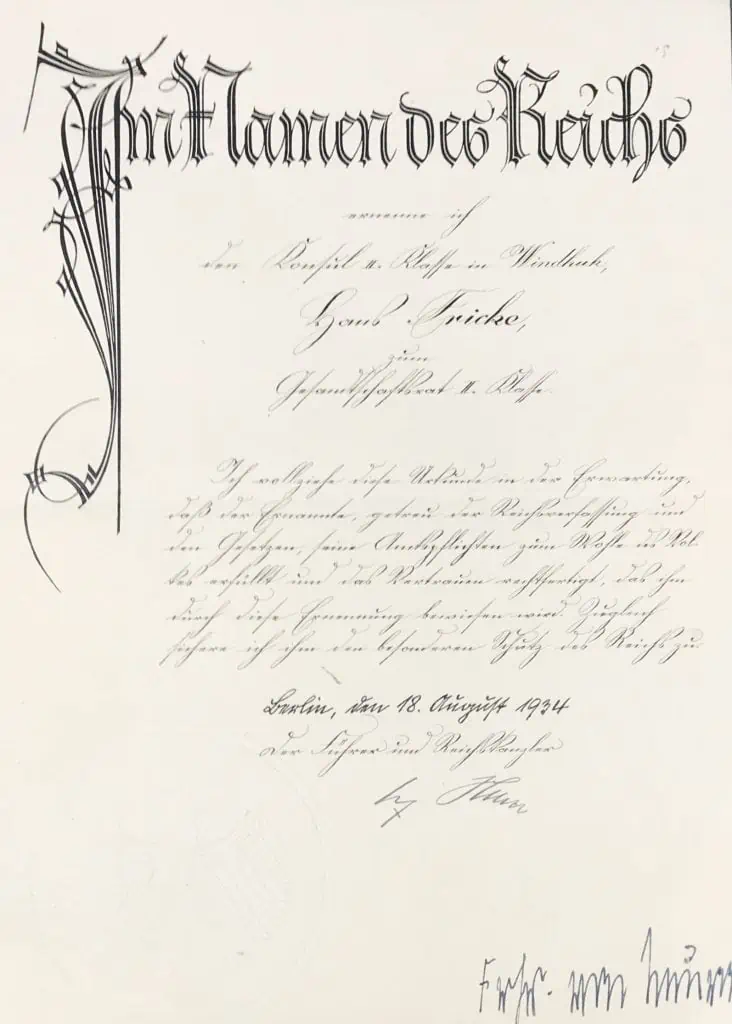 Im Namen des Reichs
ernenne ich
den Konsul II. Klasse in Windhuk,
Hans Fricke,
zum
Gesandtschaftsrat II. Klasse.
Ich vollziehe diese Urkunde in der Erwartung,
daß der Ernannte, getreu der Reichsverfassung und
den Gesetzen, seine Amtspflichten zum Wohle des Vol-
kes erfüllt und das Vertrauen rechtfertigt, das ihm
durch diese Ernennung bewiesen wird. Zugleich
sichere ich ihm den besonderen Schutz des Reichs zu.
Berlin, den 18. August 1934
Der Führer und Reichskanzler
Frhr. von